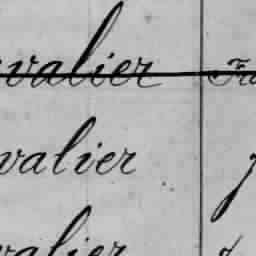 valier
valier
valier